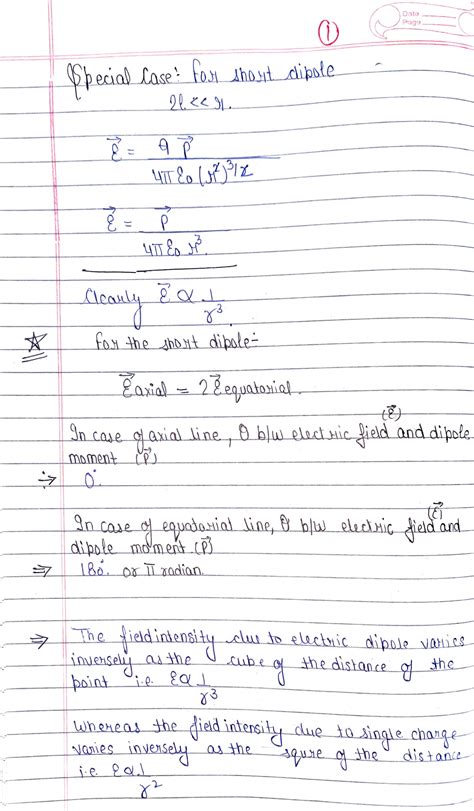 (1)
Date
Page
Special Case: for short dipole
2l << r.
E⃗ = q P⃗ / 4πε₀ (r²)^3/2
E⃗ = P⃗ / 4πε₀ r³.
Clearly E⃗ ∝ 1/r³.
for the short dipole:-
E⃗ axial = 2E⃗ equatorial.
(E⃗)
In case of axial line, θ b/w electric field and dipole
moment (P⃗)
⇒ 0°.
(E⃗)
In case of equatorial line, θ b/w electric field and
dipole moment (P⃗)
⇒ 180° or π radian.
⇒ The field intensity due to electric dipole varies
inversely as the cube of the distance of the
point i.e. E ∝ 1/r³
Whereas the field intensity due to single charge
varies inversely as the squre of the distance
i.e. E ∝ 1/r²